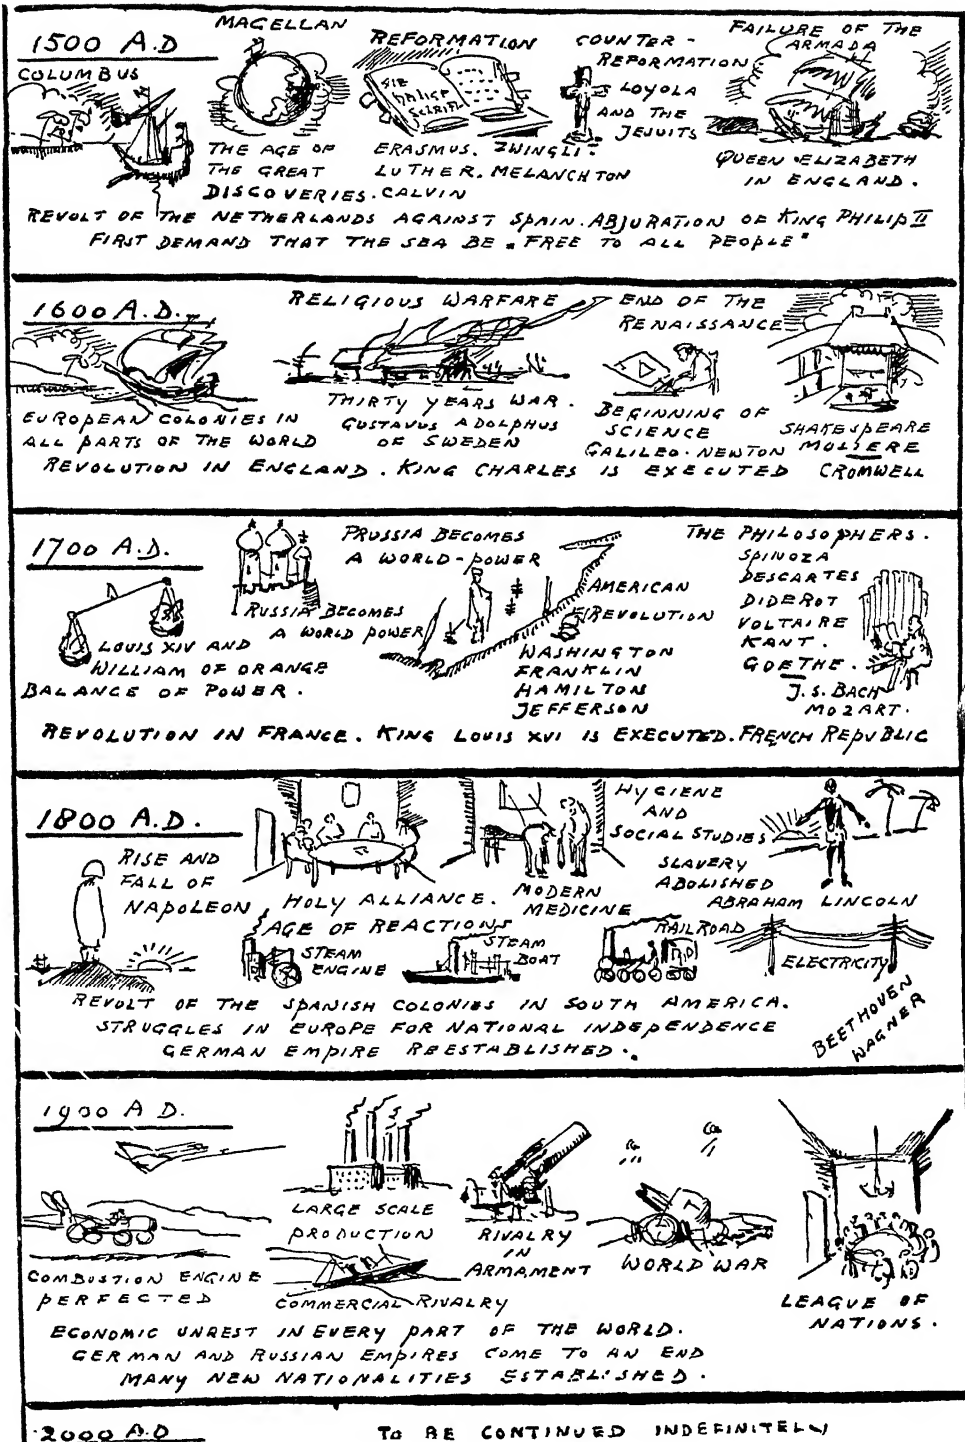 1500 A.D
COLUMBUS
MAGELLAN
THE AGE OF
THE GREAT
DISCOVERIES.
REFORMATION
ERASMUS. ZWINGLI.
LUTHER. MELANCHTON
CALVIN
COUNTER-
REFORMATION
LOYOLA
AND THE
JEJUITS
FAILURE OF THE
ARMADA
QUEEN ELIZABETH
IN ENGLAND.
REVOLT OF THE NETHERLANDS AGAINST SPAIN. ABJURATION OF KING PHILIP II
FIRST DEMAND THAT THE SEA BE „FREE TO ALL PEOPLE"
1600 A.D.
EUROPEAN COLONIES IN
ALL PARTS OF THE WORLD
RELIGIOUS WARFARE
THIRTY YEARS WAR.
GUSTAVUS ADOLPHUS
OF SWEDEN
END OF THE
RENAISSANCE
BEGINNING OF
SCIENCE
GALILEO. NEWTON
SHAKESPEARE
MOLIERE
REVOLUTION IN ENGLAND. KING CHARLES IS EXECUTED CROMWELL
1700 A.D.
LOUIS XIV AND
WILLIAM OF ORANGE
BALANCE OF POWER.
RUSSIA BECOMES
A WORLD POWER
PRUSSIA BECOMES
A WORLD-POWER
AMERICAN
REVOLUTION
WASHINGTON
FRANKLIN
HAMILTON
JEFFERSON
THE PHILOSOPHERS.
SPINOZA
DESCARTES
DIDEROT
VOLTAIRE
KANT.
GOETHE.
J.S. BACH
MOZART.
REVOLUTION IN FRANCE. KING LOUIS XVI IS EXECUTED. FRENCH REPUBLIC
1800 A.D.
RISE AND
FALL OF
NAPOLEON
HOLY ALLIANCE.
AGE OF REACTIONS
MODERN
MEDICINE
HYGIENE
AND
SOCIAL STUDIES
SLAVERY
ABOLISHED
ABRAHAM LINCOLN
STEAM
ENGINE
STEAM
BOAT
RAILROAD
ELECTRICITY
REVOLT OF THE SPANISH COLONIES IN SOUTH AMERICA.
STRUGGLES IN EUROPE FOR NATIONAL INDEPENDENCE
GERMAN EMPIRE REESTABLISHED.
BEETHOVEN
WAGNER
1900 A D.
COMBUSTION ENGINE
PERFECTED
LARGE SCALE
PRODUCTION
COMMERCIAL RIVALRY
RIVALRY
IN
ARMAMENT
WORLD WAR
LEAGUE OF
NATIONS.
ECONOMIC UNREST IN EVERY PART OF THE WORLD.
GERMAN AND RUSSIAN EMPIRES COME TO AN END
MANY NEW NATIONALITIES ESTABLISHED.
2000 A.D
TO BE CONTINUED INDEFINITELY